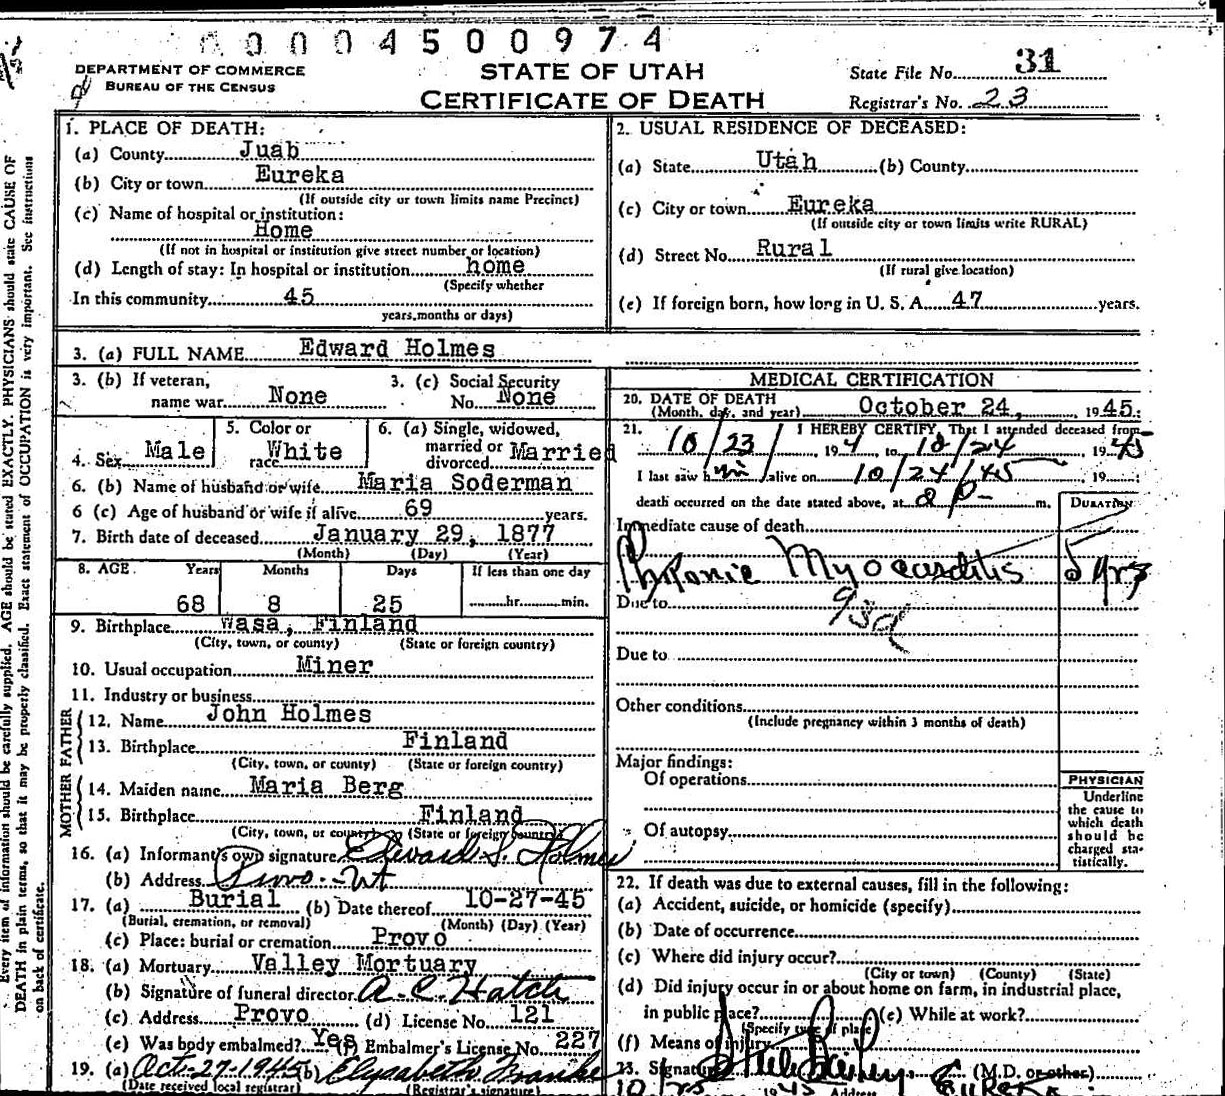 00004500974
DEPARTMENT OF COMMERCE
BUREAU OF THE CENSUS
STATE OF UTAH
CERTIFICATE OF DEATH
State File No. 31
Registrar's No. 23
Every item of information should be carefully supplied. AGE should be stated EXACTLY. PHYSICIANS should state CAUSE OF
DEATH in plain terms, so that it may be properly classified. Exact statement of OCCUPATION is very important. See instructions
on back of certificate.
1. PLACE OF DEATH:
(a) County Juab
(b) City or town Eureka
(If outside city or town limits name Precinct)
(c) Name of hospital or institution:
Home
(If not in hospital or institution give street number or location)
(d) Length of stay: In hospital or institution home
(Specify whether
In this community 45
years, months or days)
2. USUAL RESIDENCE OF DECEASED:
(a) State Utah (b) County
(c) City or town Eureka
(If outside city or town limits write RURAL)
(d) Street No. Rural
(If rural give location)
(e) If foreign born, how long in U. S. A. 47 years.
3. (a) FULL NAME Edward Holmes
3. (b) If veteran, name war None
3. (c) Social Security No. None
4. Sex Male
5. Color or race White
6. (a) Single, widowed, married or divorced Married
6. (b) Name of husband or wife Maria Soderman
6 (c) Age of husband or wife if alive 69 years.
7. Birth date of deceased January 29, 1877
(Month) (Day) (Year)
8. AGE Years Months Days If less than one day
68 8 25 hr. min.
9. Birthplace Wasa, Finland
(City, town, or county) (State or foreign country)
10. Usual occupation Miner
11. Industry or business
FATHER
12. Name John Holmes
13. Birthplace Finland
(City, town, or county) (State or foreign country)
MOTHER
14. Maiden name Maria Berg
15. Birthplace Finland
(City, town, or county) (State or foreign country)
16. (a) Informant's own signature Edward S. Holmes
(b) Address Provo - Ut
17. (a) Burial (b) Date thereof 10-27-45
(Burial, cremation, or removal) (Month) (Day) (Year)
(c) Place: burial or cremation Provo
18. (a) Mortuary Valley Mortuary
(b) Signature of funeral director A. C. Hatch
(c) Address Provo (d) License No. 121
(e) Was body embalmed? Yes (f) Embalmer's License No. 227
19. (a) Oct-27-1945 (b) Elysabeth Franke
(Date received local registrar) (Registrar's signature)
MEDICAL CERTIFICATION
20. DATE OF DEATH
(Month, day, and year) October 24, 1945.
21. I HEREBY CERTIFY, That I attended deceased from
10/23 194 , to 10/24 1945
I last saw him alive on 10/24/45 19
death occurred on the date stated above, at 2 p- m.
DURATION
Immediate cause of death
Chronic Myocarditis 5 yrs
93d
Due to
Due to
Other conditions
(Include pregnancy within 3 months of death)
Major findings:
Of operations
Of autopsy
PHYSICIAN
Underline
the cause to
which death
should be
charged sta-
tistically.
22. If death was due to external causes, fill in the following:
(a) Accident, suicide, or homicide (specify)
(b) Date of occurrence
(c) Where did injury occur?
(City or town) (County) (State)
(d) Did injury occur in or about home on farm, in industrial place,
in public place? (e) While at work?
(Specify type of place)
(f) Means of injury
23. Signature Steele Bailey (M.D. or other)
10/25 1945 Address Eureka